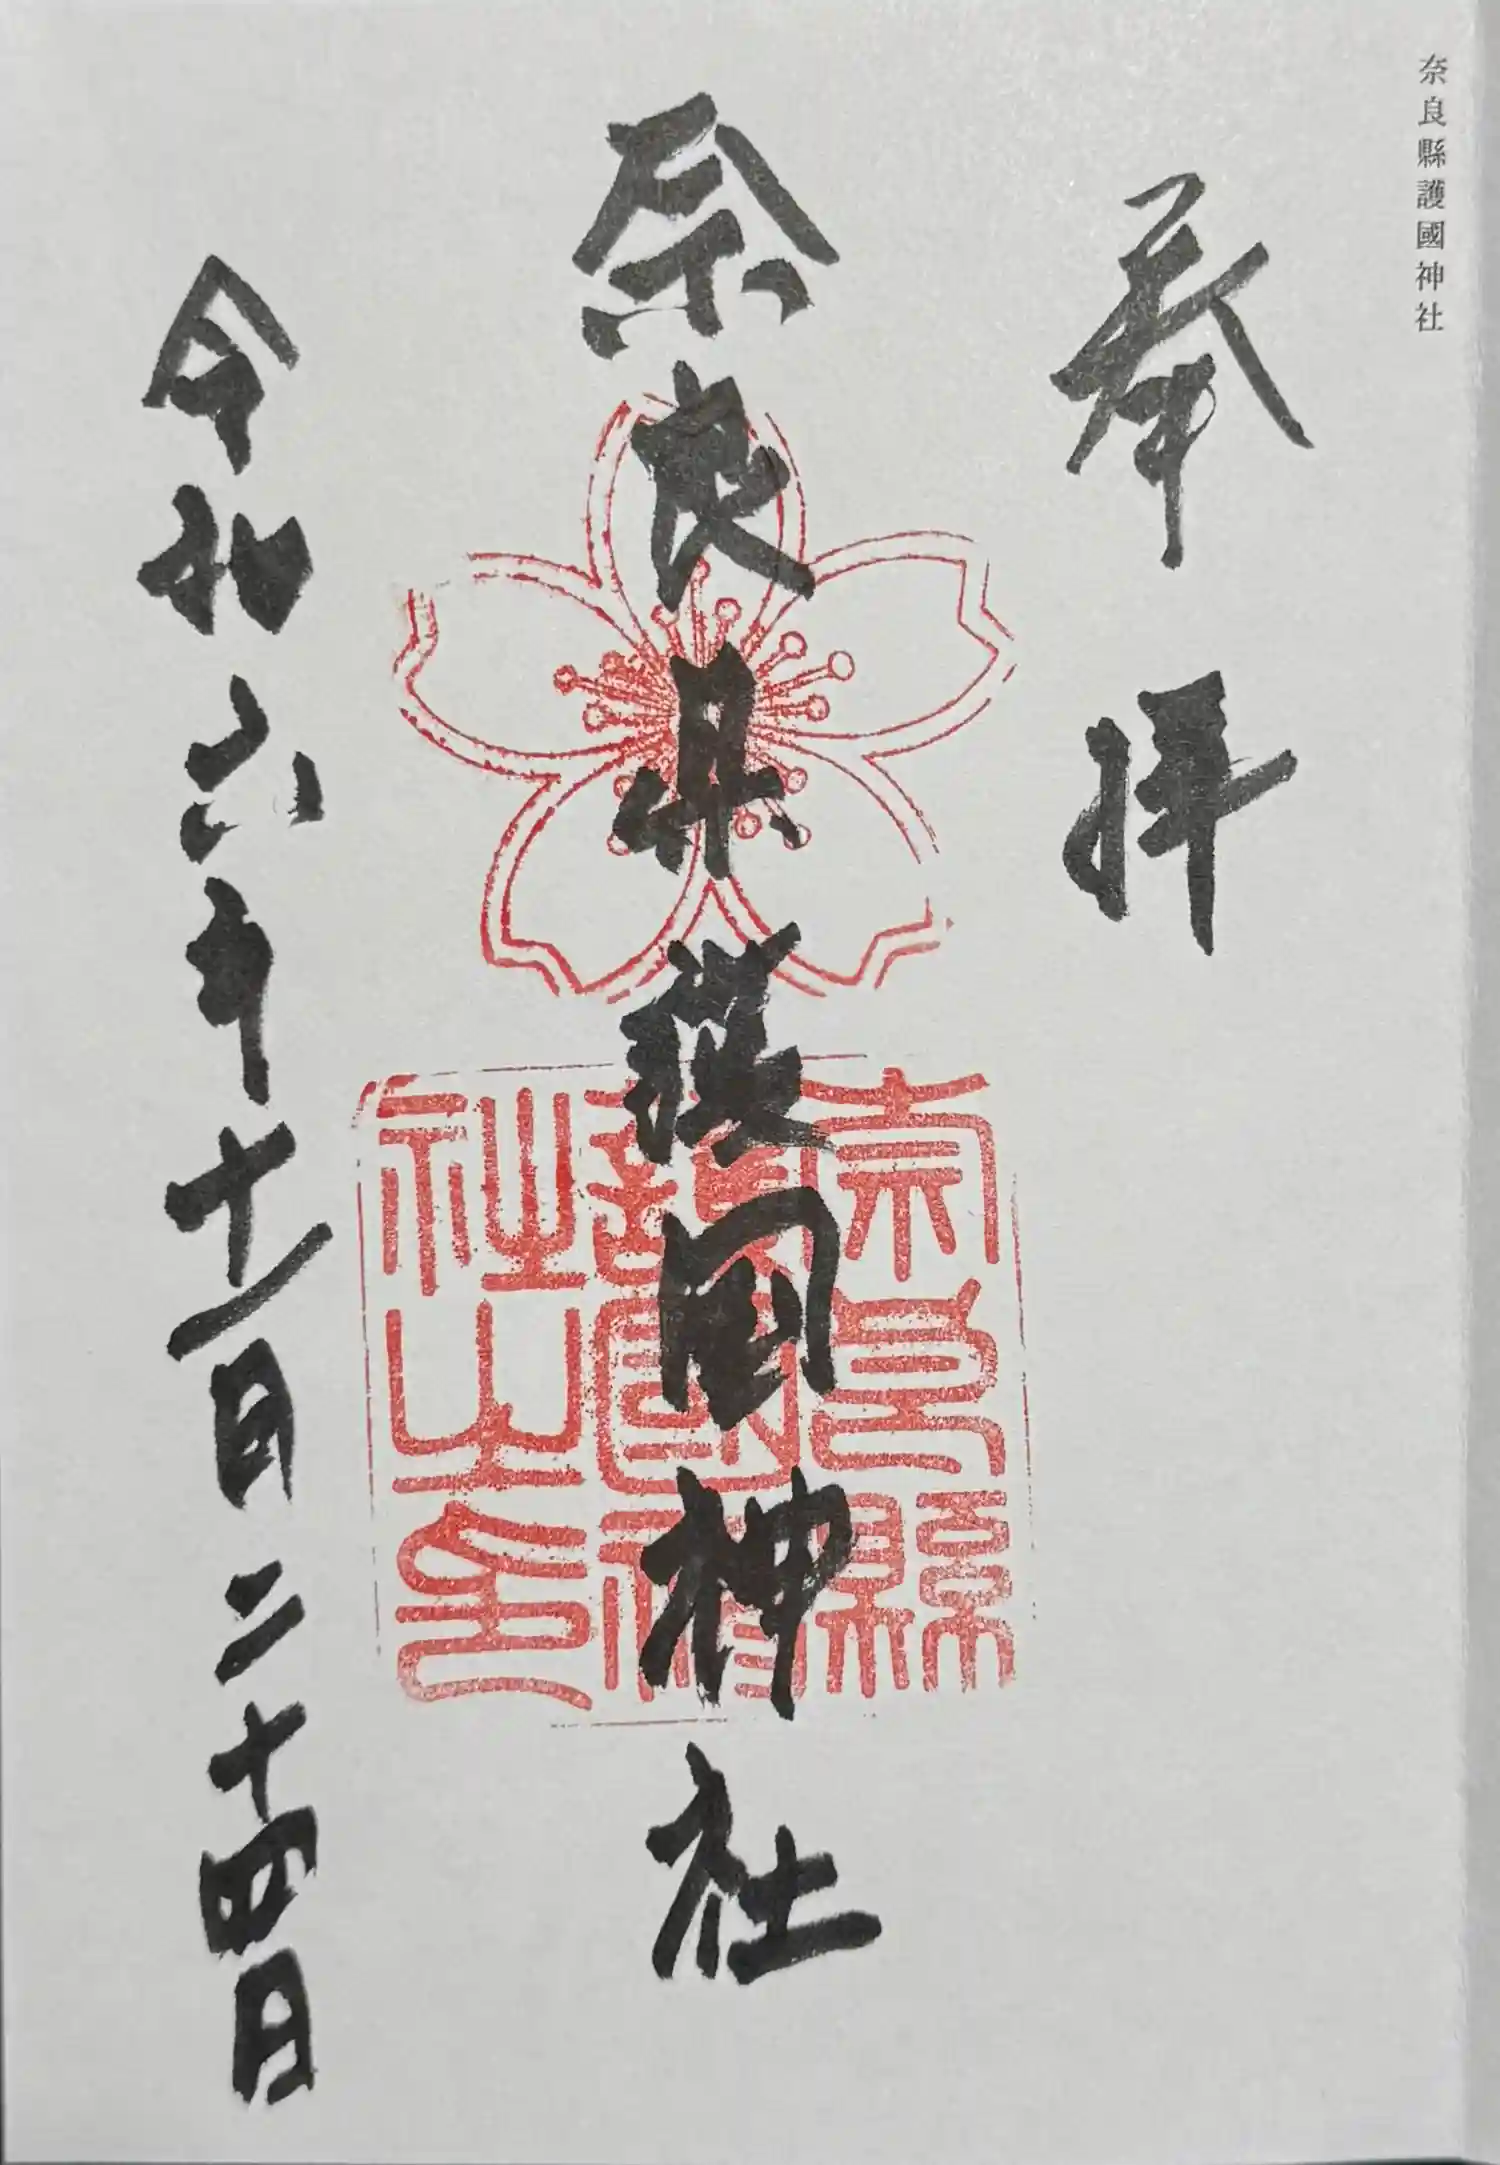 奈良縣護國神社
奉拝
奈良県護国神社
奈良縣
護國神
社之印
令和六年十一月二十四日